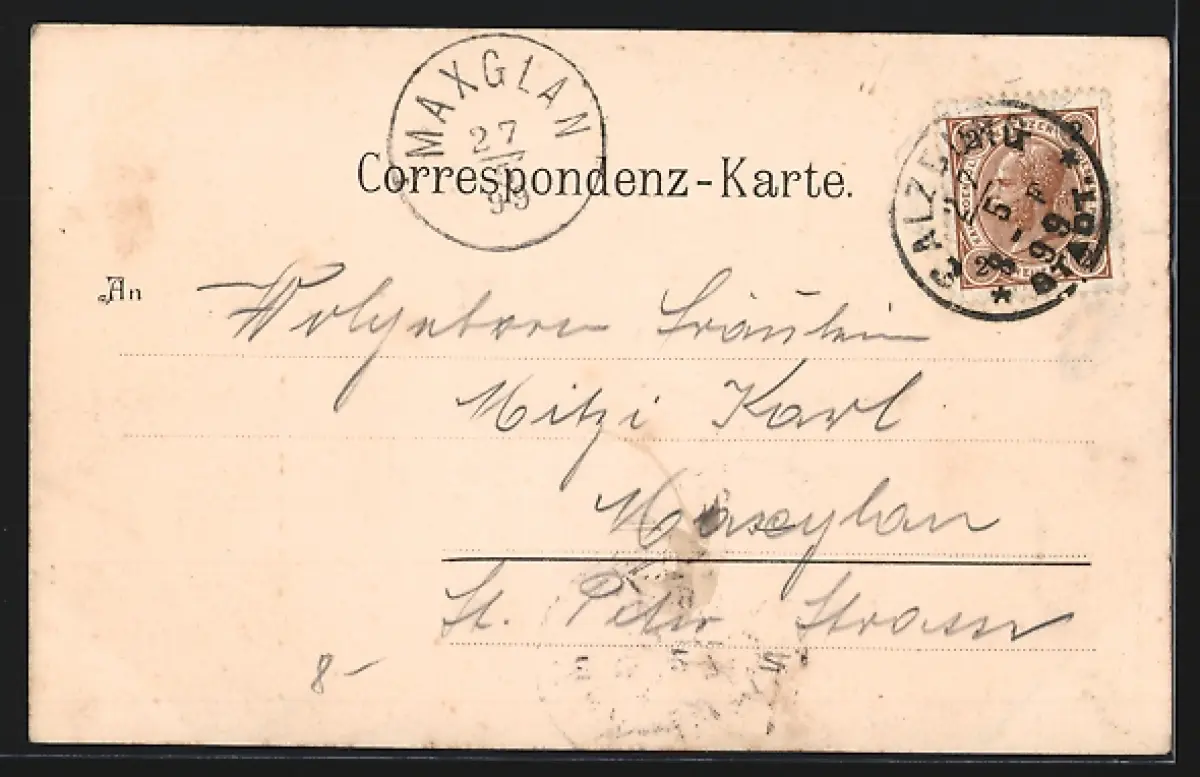 MAXGLAN
27
99
Correspondenz-Karte.
SALZBURG STADT
27 5 99
8-F
2 2 2
An Wolgeboren Fräulein
Mitzi Karl
Maxglan
St. Peter Strasse
8-